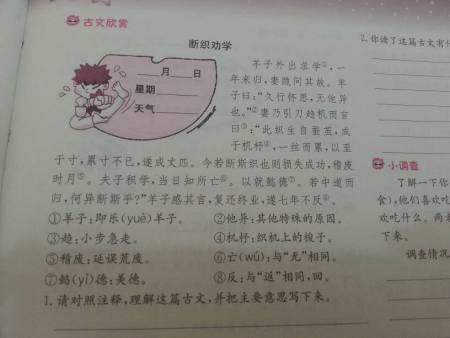 古文欣赏
断织劝学
月 日
星期
天气
羊子外出求学①,一
年来归,妻跪问其故。羊
子曰:"久行怀思,无他异
也。"②妻乃引刀趋机而言
曰③:"此织生自蚕茧,成
于机杼④,一丝而累,以至
于寸,累寸不已,遂成丈匹。今若断斯织也则损失成功,稽废
时月⑤。夫子积学,当日知所亡⑥。以就懿德⑦。若中道而
归,何异断斯乎?"羊子感其言,复还终业,遂七年不反⑧。
①羊子:即乐(yuè)羊子。 ②他异:其他特殊的原因。
③趋:小步急走。 ④机杼:织机上的梭子。
⑤稽废:延误荒废。 ⑥亡(wú):与"无"相同。
⑦懿(yì)德:美德。 ⑧反:与"返"相同,回。
1.请对照注释,理解这篇古文,并把主要意思写下来。
2.你读了这篇古文有
小调查
了解一下你
食),他们喜欢吃
欢吃什么。两
下来。
调查情况